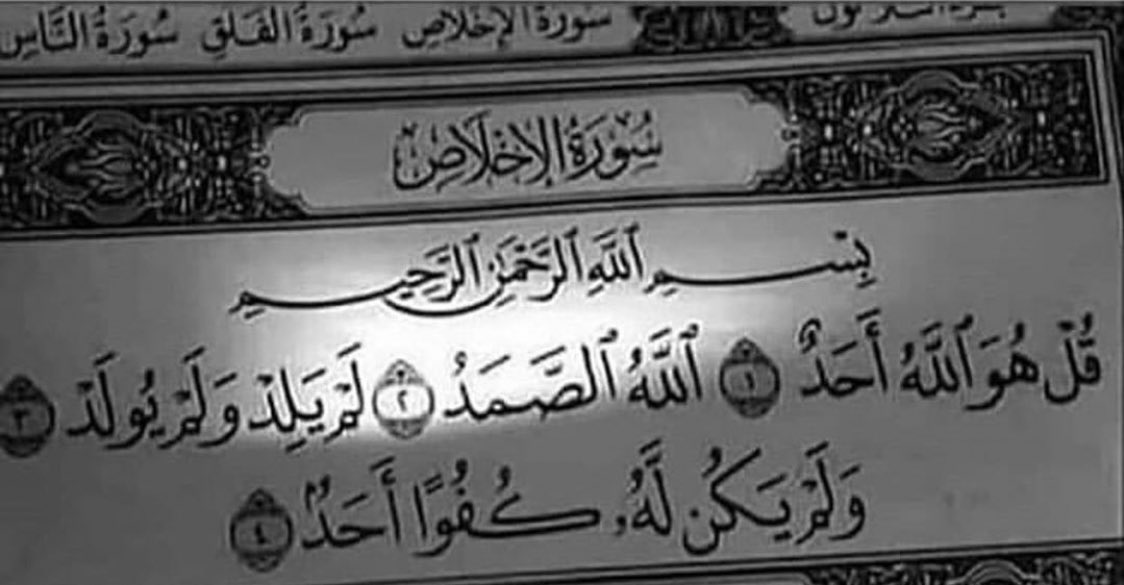 سُورَةُ الإِخْلَاصِ سُورَةُ الفَلَقِ سُورَةُ النَّاسِ
سُورَةُ الإِخْلَاصِ
بِسْمِ ٱللَّهِ ٱلرَّحْمَٰنِ ٱلرَّحِيمِ
قُلْ هُوَ ٱللَّهُ أَحَدٌ ١ ٱللَّهُ ٱلصَّمَدُ ٢ لَمْ يَلِدْ وَلَمْ يُولَدْ ٣
وَلَمْ يَكُن لَّهُۥ كُفُوًا أَحَدٌۢ ٤